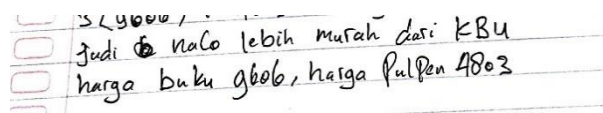 3(9606)
Judi naco lebih murah dari KBU
harga buku 9606, harga Pulpen 4803